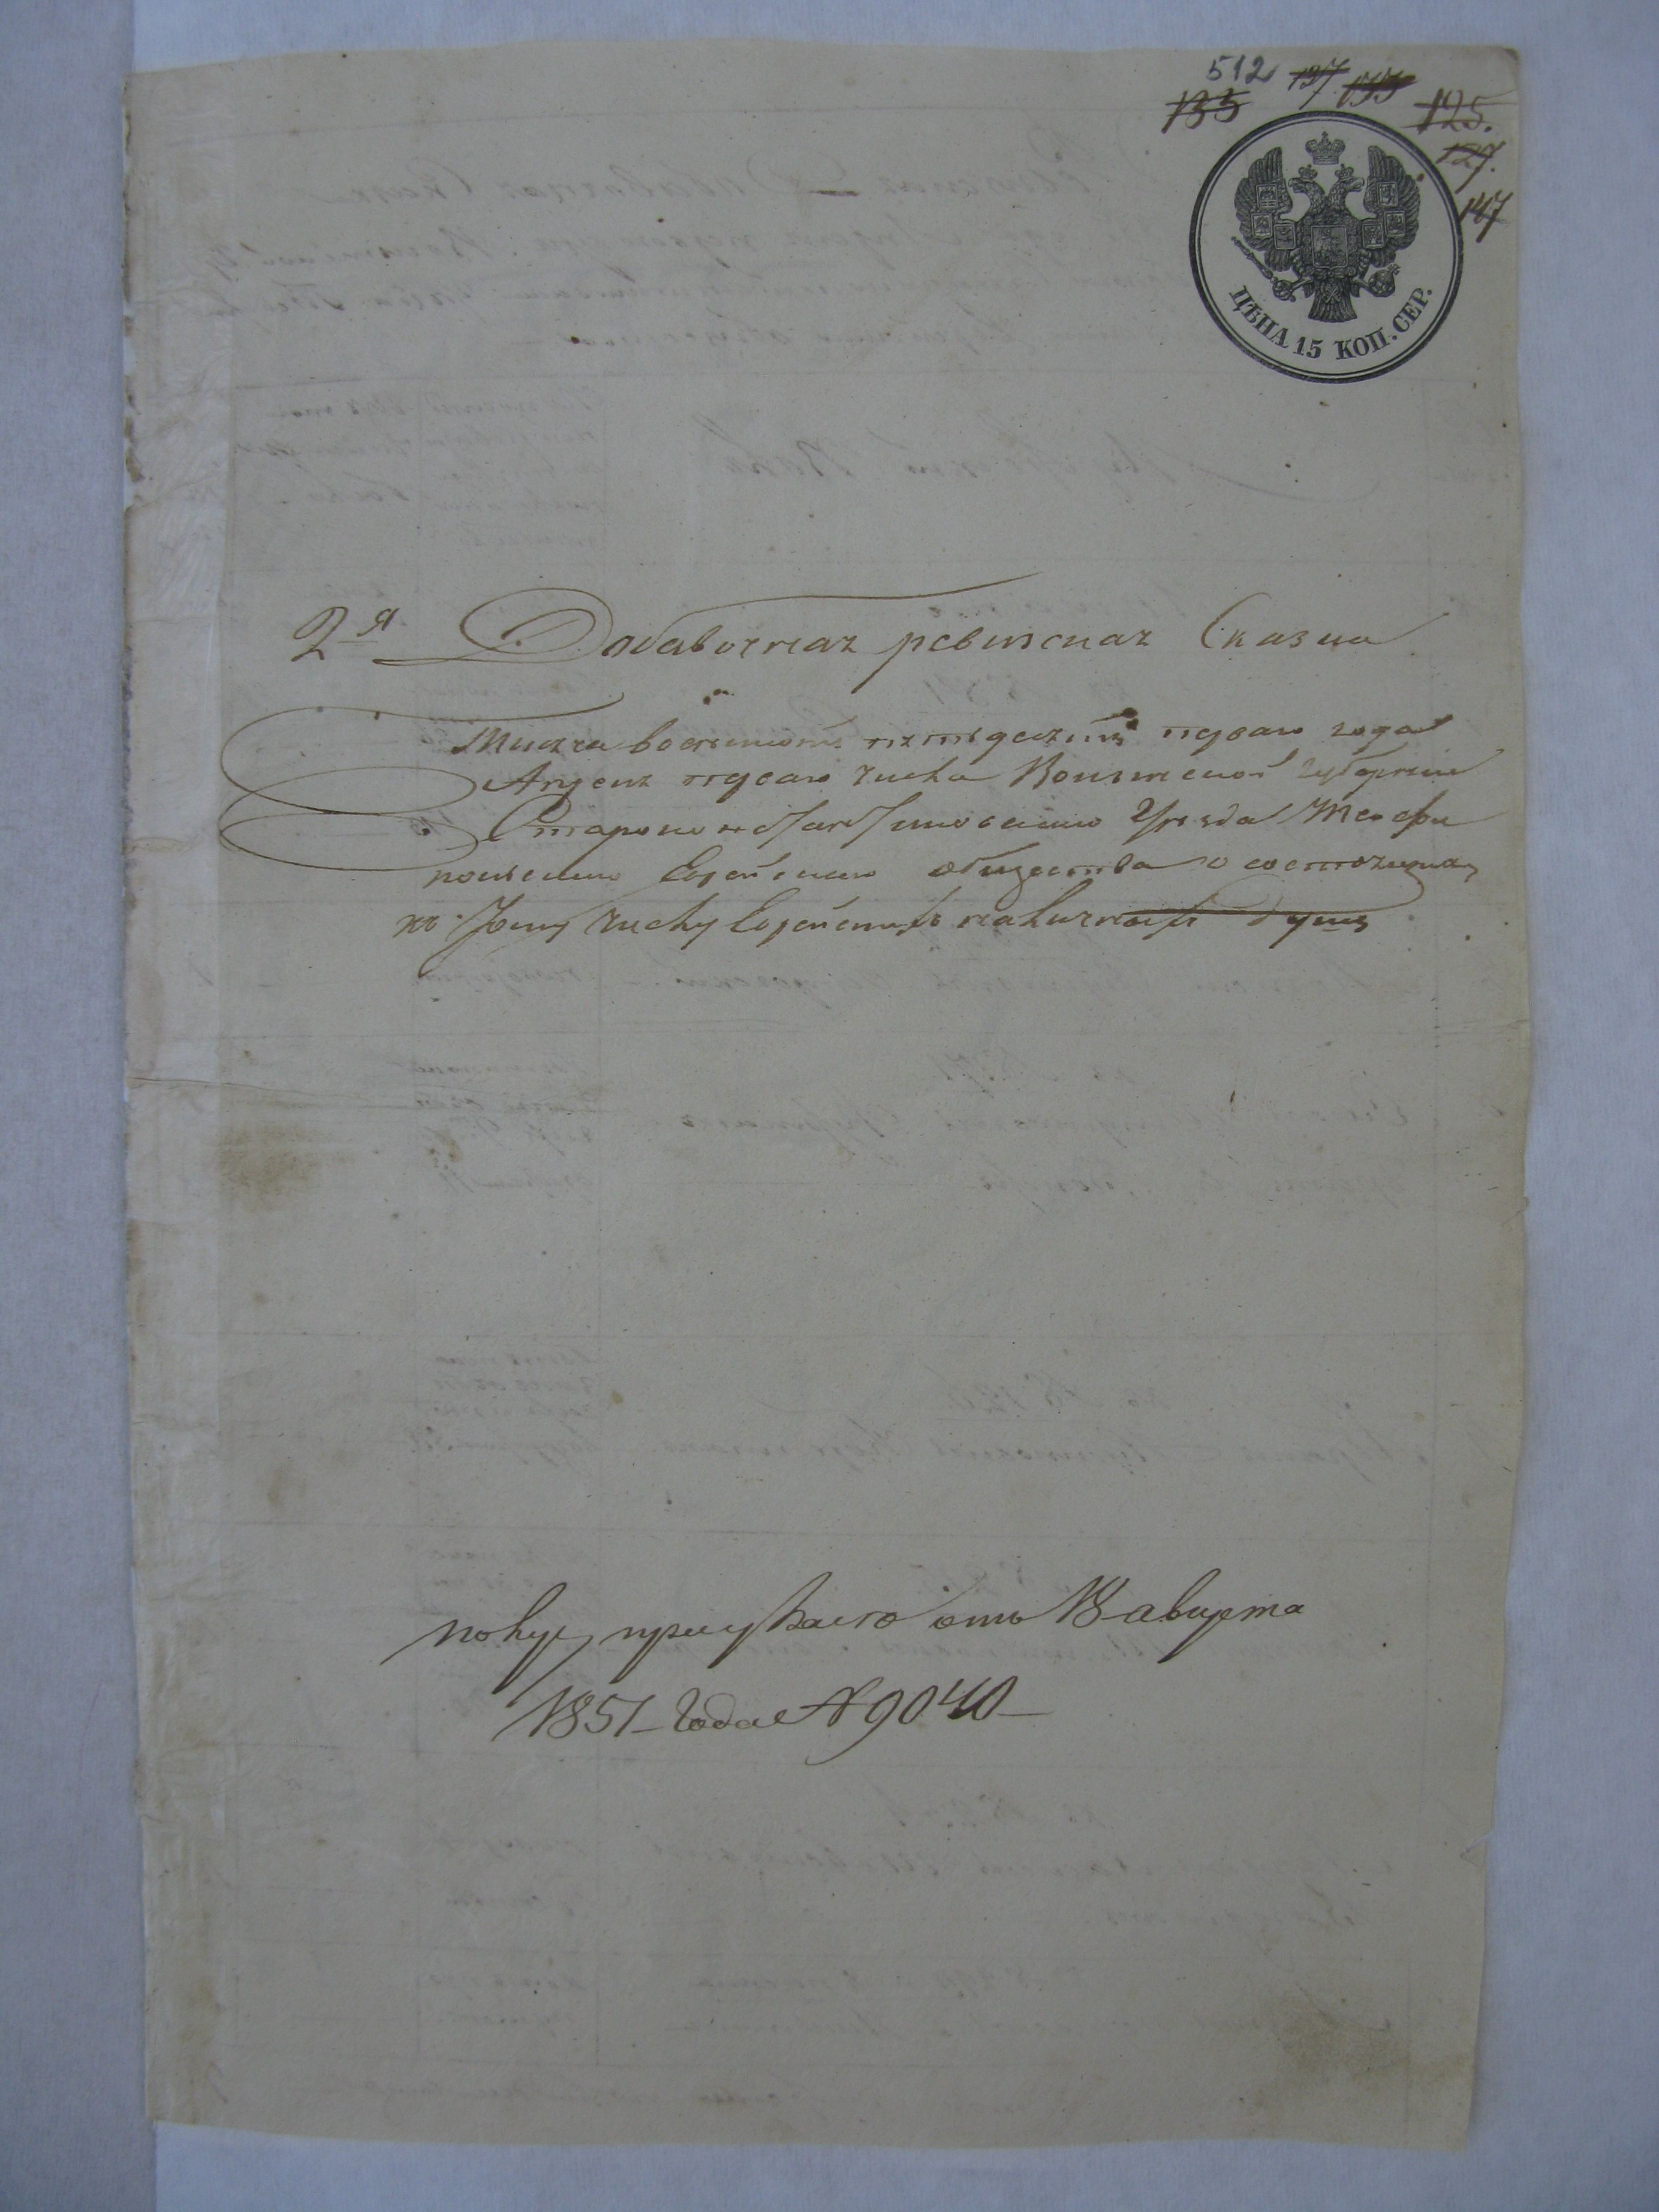 512 137 175
135 125.
127.
147
ЦѢНА 15 КОП. СЕР.
2я Добавочная ревизская Сказка
Тысяча восемьсотъ пятьдесятъ перваго года
Апреля перваго числа Волынской губернии
Староконстантиновскаго Уезда Теофи
польскаго Еврейскаго общества о состоящихъ
къ сему числу Еврейскихъ наличныхъ душъ
отъ 18 августа
1851 года №9040